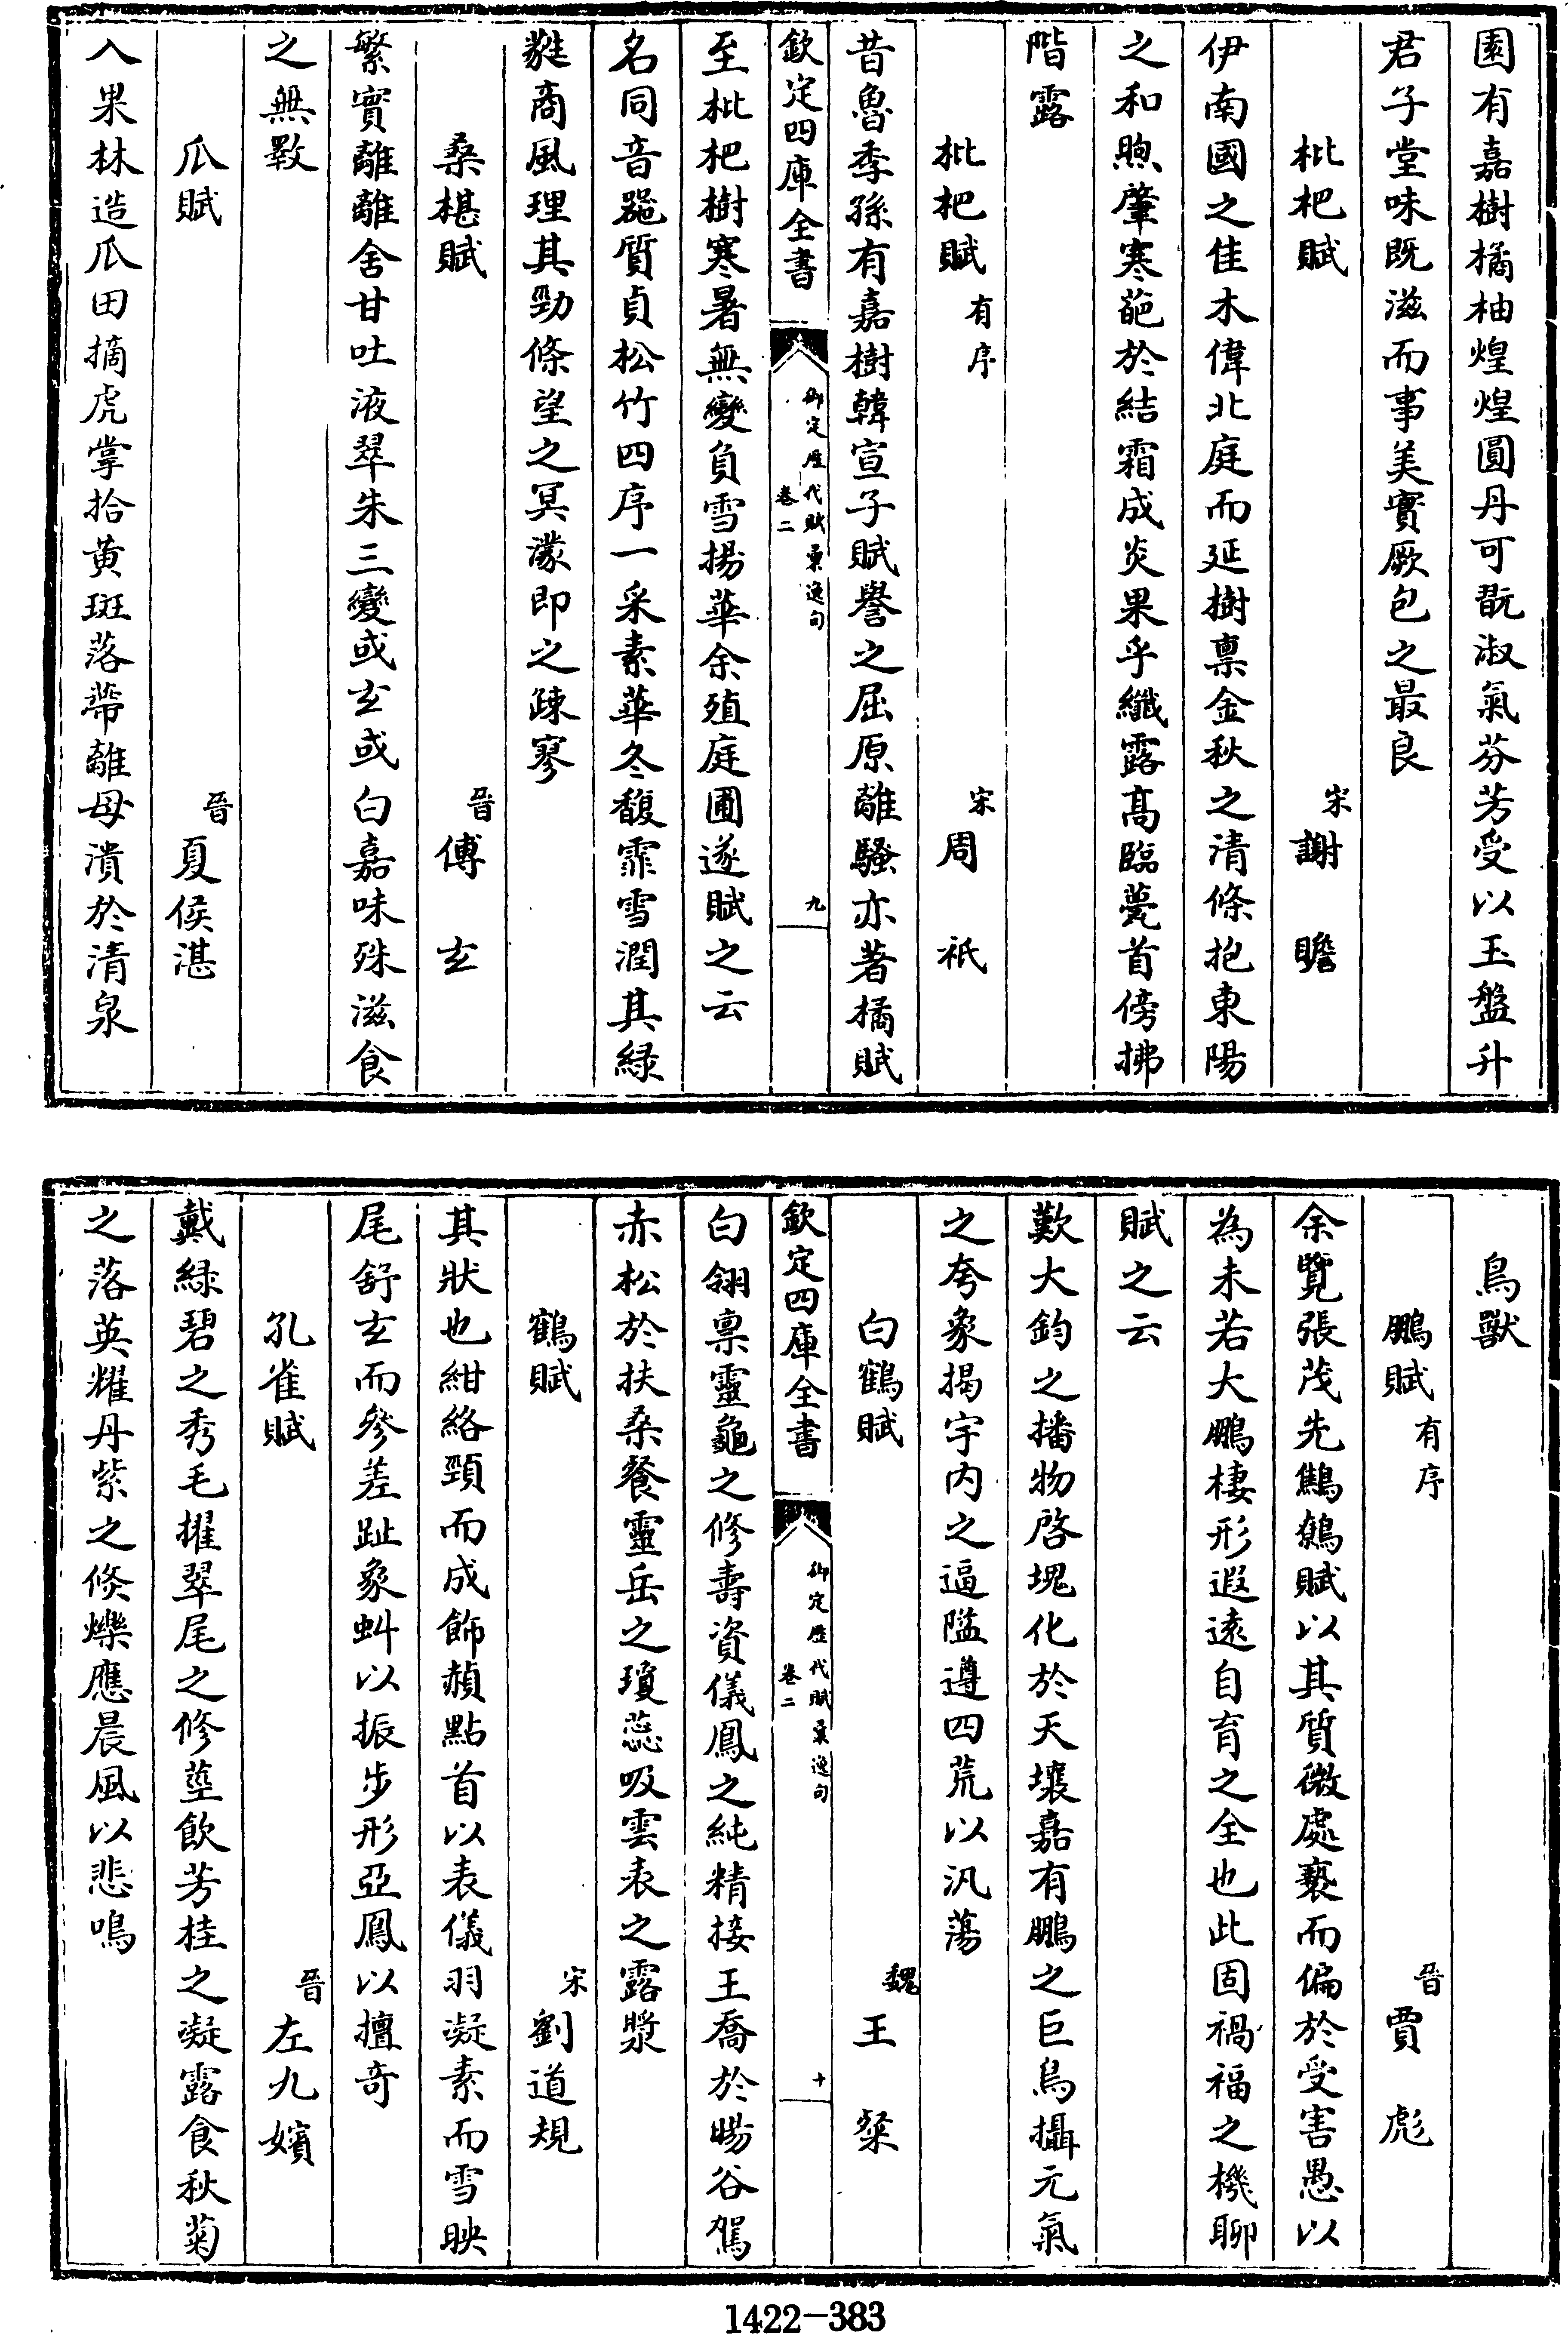 園有嘉樹橘柚煌煌圓丹可翫淑氣芬芳受以玉盤升
君子堂味既滋而事美實厥包之最良
枇杷賦 宋謝瞻
伊南國之佳木偉北庭而延樹禀金秋之清條抱東陽
之和煦肇寒葩於結霜成炎果乎纖露髙臨甍首傍拂
階露
枇杷賦有序 宋周祇
昔魯季孫有嘉樹韓宣子賦譽之屈原離騷亦著橘賦
欽定四庫全書 御定歷代賦彙逸句 卷二 九
至枇杷樹寒暑無變負雪揚華余殖庭圃遂賦之云
名同音器質貞松竹四序一采素華冬馥霏雪潤其緑
蕤商風理其勁條望之冥濛即之疎寥
桑椹賦 晉傅玄
繁實離離含甘吐液翠朱三變或玄或白嘉味殊滋食
之無斁
瓜賦 晉夏侯湛
入果林造瓜田摘虎掌拾黄斑落蒂離母漬於清泉
鳥獸
鵬賦有序 晉賈彪
余覽張茂先鷦鷯賦以其質微處褻而偏於受害愚以
為未若大鵬棲形遐逺自育之全也此固禍福之機聊
賦之云
歎大鈞之播物啓塊化於天壤嘉有鵬之巨鳥攝元氣
之夸象揭宇内之逼隘遵四荒以汎蕩
白鶴賦 魏王粲
欽定四庫全書 御定歷代賦彙逸句 卷二 十
白翎禀靈龜之修壽資儀鳳之純精接王喬於暘谷駕
赤松於扶桑餐靈岳之瓊蕊吸雲表之露漿
鶴賦 宋劉道規
其狀也紺絡頸而成飾赬點首以表儀羽凝素而雪映
尾舒玄而參差趾象虯以振步形亞鳳以擅奇
孔雀賦 晉左九嬪
戴緑碧之秀毛擢翠尾之修莖飲芳桂之凝露食秋菊
之落英耀丹紫之倏爍應晨風以悲鳴
1422-383